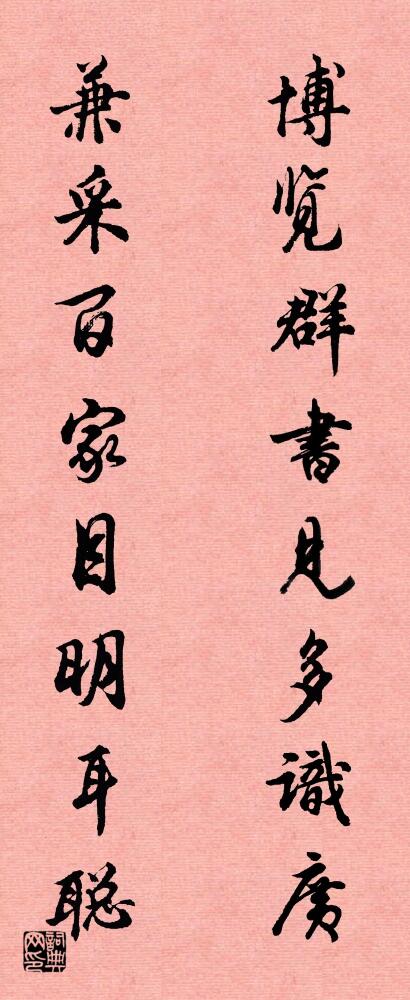 博览群書見多識廣
兼采百家目明耳聪
詞典网印